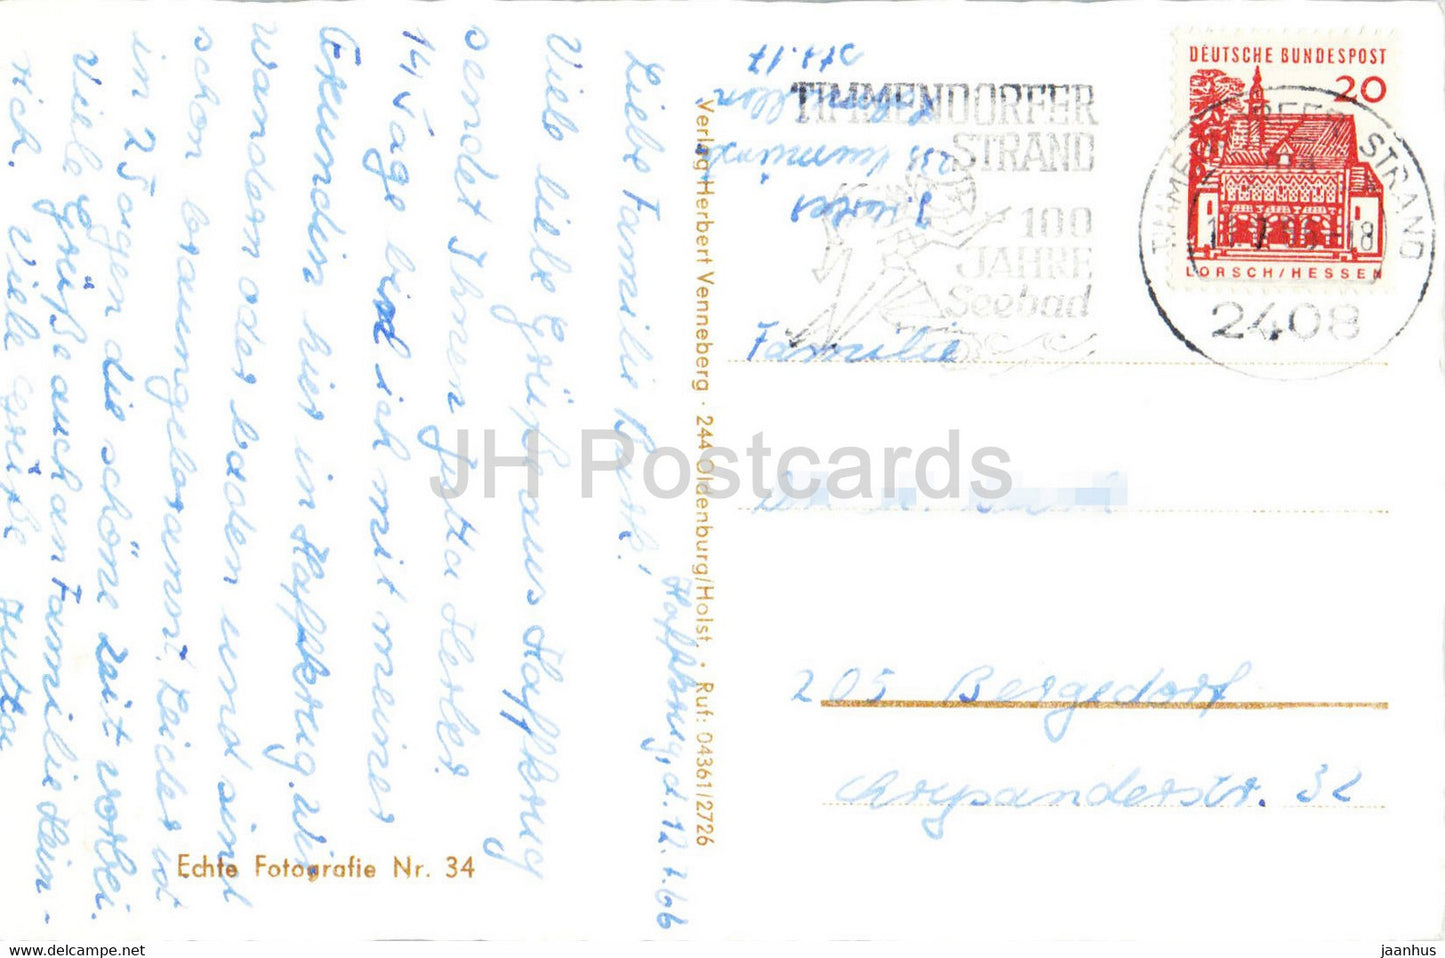 Haffkrug, d. 12.7.66
Liebe Familie
Viele liebe Grüße aus Haffkrug
sendet Ihnen Jutta
14 Tage bin ich mit meiner
Freundin hier in Haffkrug. Wir
wandern oder baden und sind
schon braungebrannt. Leider ist
in 2 Tagen die schöne Zeit vorbei.
Viele Grüße auch an Familie Hein-
rich. Viele Grüße Jutta
Echte Fotografie Nr. 34
Verlag Herbert Venneberg · 244 Oldenburg/Holst. · Ruf: 04361/2726
TIMMENDORFER
STRAND
100
JAHRE
Seebad
DEUTSCHE BUNDESPOST
20
LORSCH/HESSEN
TIMMENDORFER STRAND
2408
Familie
205 Bergedorf
Chrysanderstr. 32
JH Postcards
www.delcampe.net
jaanhus